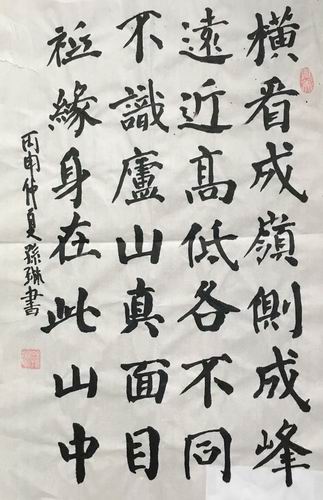 橫看成嶺側成峰
遠近高低各不同
不識廬山真面目
祗緣身在此山中
丙申仲夏孫琳書